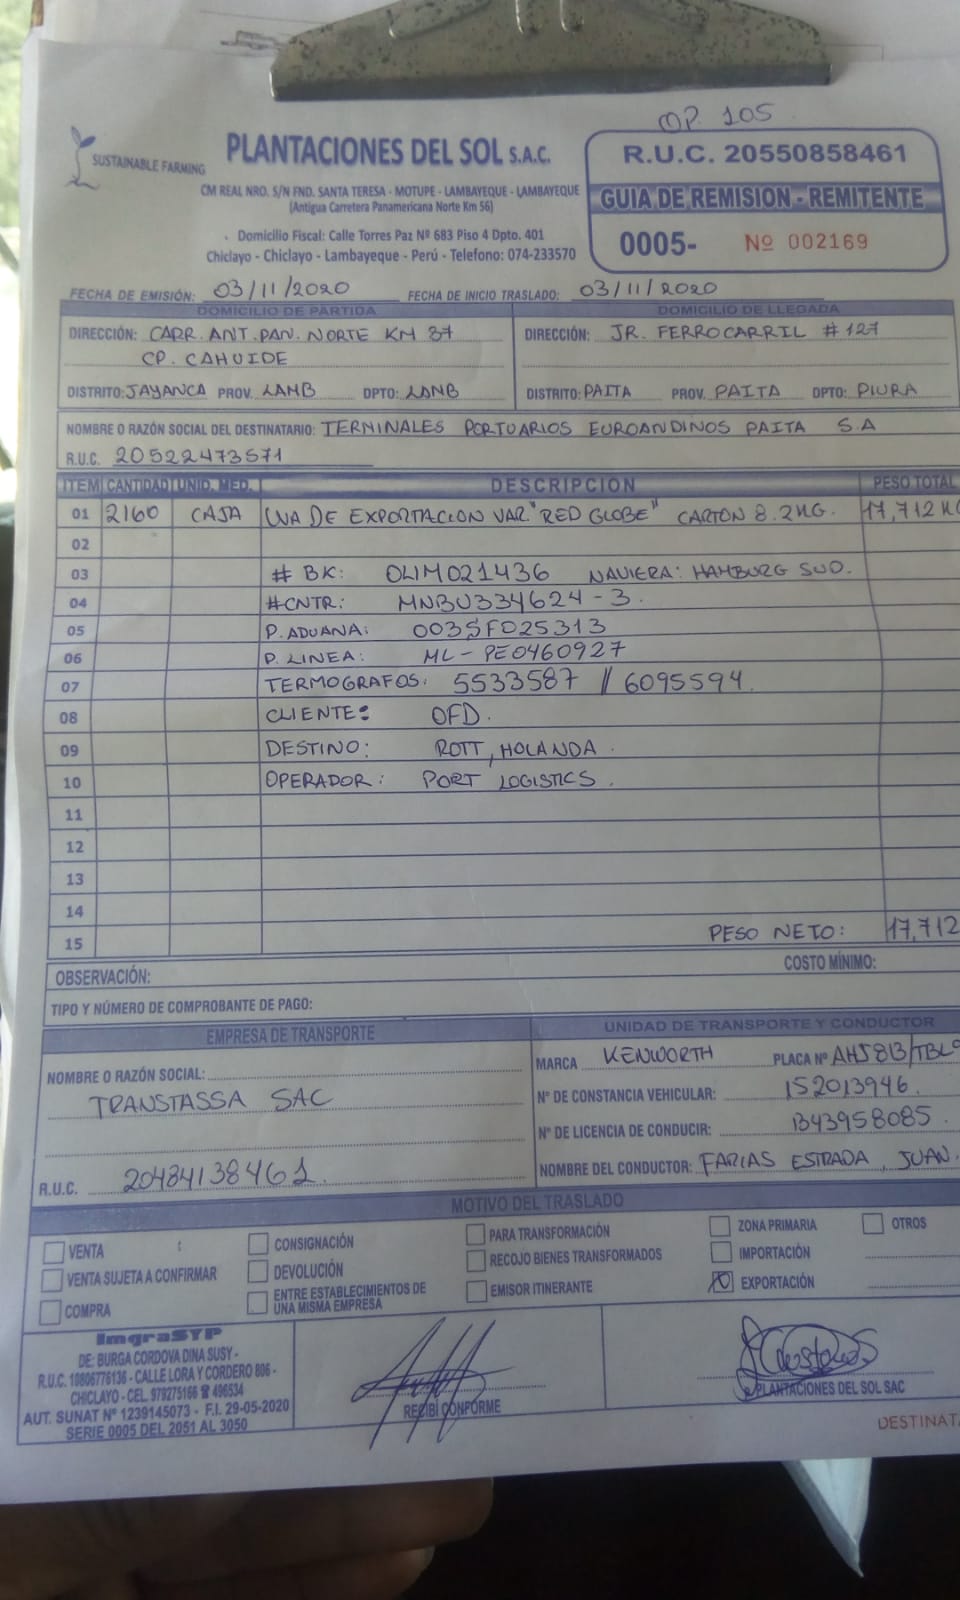 OP. 105
SUSTAINABLE FARMING
PLANTACIONES DEL SOL S.A.C.
CM REAL NRO. S/N FND. SANTA TERESA - MOTUPE - LAMBAYEQUE - LAMBAYEQUE
(Antigua Carretera Panamericana Norte Km 56)
Domicilio Fiscal: Calle Torres Paz Nº 683 Piso 4 Dpto. 401
Chiclayo - Chiclayo - Lambayeque - Perú - Telefono: 074-233570
R.U.C. 20550858461
GUIA DE REMISION - REMITENTE
0005- Nº 002169
FECHA DE EMISIÓN: 03/11/2020 FECHA DE INICIO TRASLADO: 03/11/2020
DOMICILIO DE PARTIDA
DIRECCIÓN: CARR. ANT. PAN. NORTE KM 37
CP. CAHUIDE
DISTRITO: JAYANCA PROV. LAMB DPTO: LAMB
DOMICILIO DE LLEGADA
DIRECCIÓN: JR. FERROCARRIL # 127
DISTRITO: PAITA PROV. PAITA DPTO: PIURA
NOMBRE O RAZÓN SOCIAL DEL DESTINATARIO: TERMINALES PORTUARIOS EUROANDINOS PAITA S.A
R.U.C. 20522473571
ITEM CANTIDAD UNID. MED. DESCRIPCION PESO TOTAL
01 2160 CAJA UVA DE EXPORTACION VAR. "RED GLOBE" CARTON 8.2 KG. 17,712 KG
02
03 # BK: OLIM021436 NAVIERA: HAMBURG SUD.
04 #CNTR: MNBU334624-3.
05 P. ADUANA: 003SF025313
06 P. LINEA: ML-PE0460927
07 TERMOGRAFOS: 5533587 // 6095594.
08 CLIENTE: OFD.
09 DESTINO: ROTT, HOLANDA.
10 OPERADOR: PORT LOGISTICS.
11
12
13
14
15 PESO NETO: 17,712
OBSERVACIÓN: COSTO MÍNIMO:
TIPO Y NÚMERO DE COMPROBANTE DE PAGO:
EMPRESA DE TRANSPORTE
NOMBRE O RAZÓN SOCIAL:
TRANSTASSA SAC
R.U.C. 20484138461
UNIDAD DE TRANSPORTE Y CONDUCTOR
MARCA KENWORTH PLACA Nº AHJ813/TBL9
Nº DE CONSTANCIA VEHICULAR: 152013946.
Nº DE LICENCIA DE CONDUCIR: B43958085.
NOMBRE DEL CONDUCTOR: FARIAS ESTRADA, JUAN.
MOTIVO DEL TRASLADO
VENTA
VENTA SUJETA A CONFIRMAR
COMPRA
CONSIGNACIÓN
DEVOLUCIÓN
ENTRE ESTABLECIMIENTOS DE
UNA MISMA EMPRESA
PARA TRANSFORMACIÓN
RECOJO BIENES TRANSFORMADOS
EMISOR ITINERANTE
ZONA PRIMARIA
IMPORTACIÓN
X EXPORTACIÓN
OTROS
ImgraSYP
DE: BURGA CORDOVA DINA SUSY -
R.U.C. 10806776136 - CALLE LORA Y CORDERO 806 -
CHICLAYO - CEL. 979275166 ☎ 496534
AUT. SUNAT Nº 1239145073 - F.I. 29-05-2020
SERIE 0005 DEL 2051 AL 3050
RECIBÍ CONFORME
PLANTACIONES DEL SOL SAC
DESTINATA